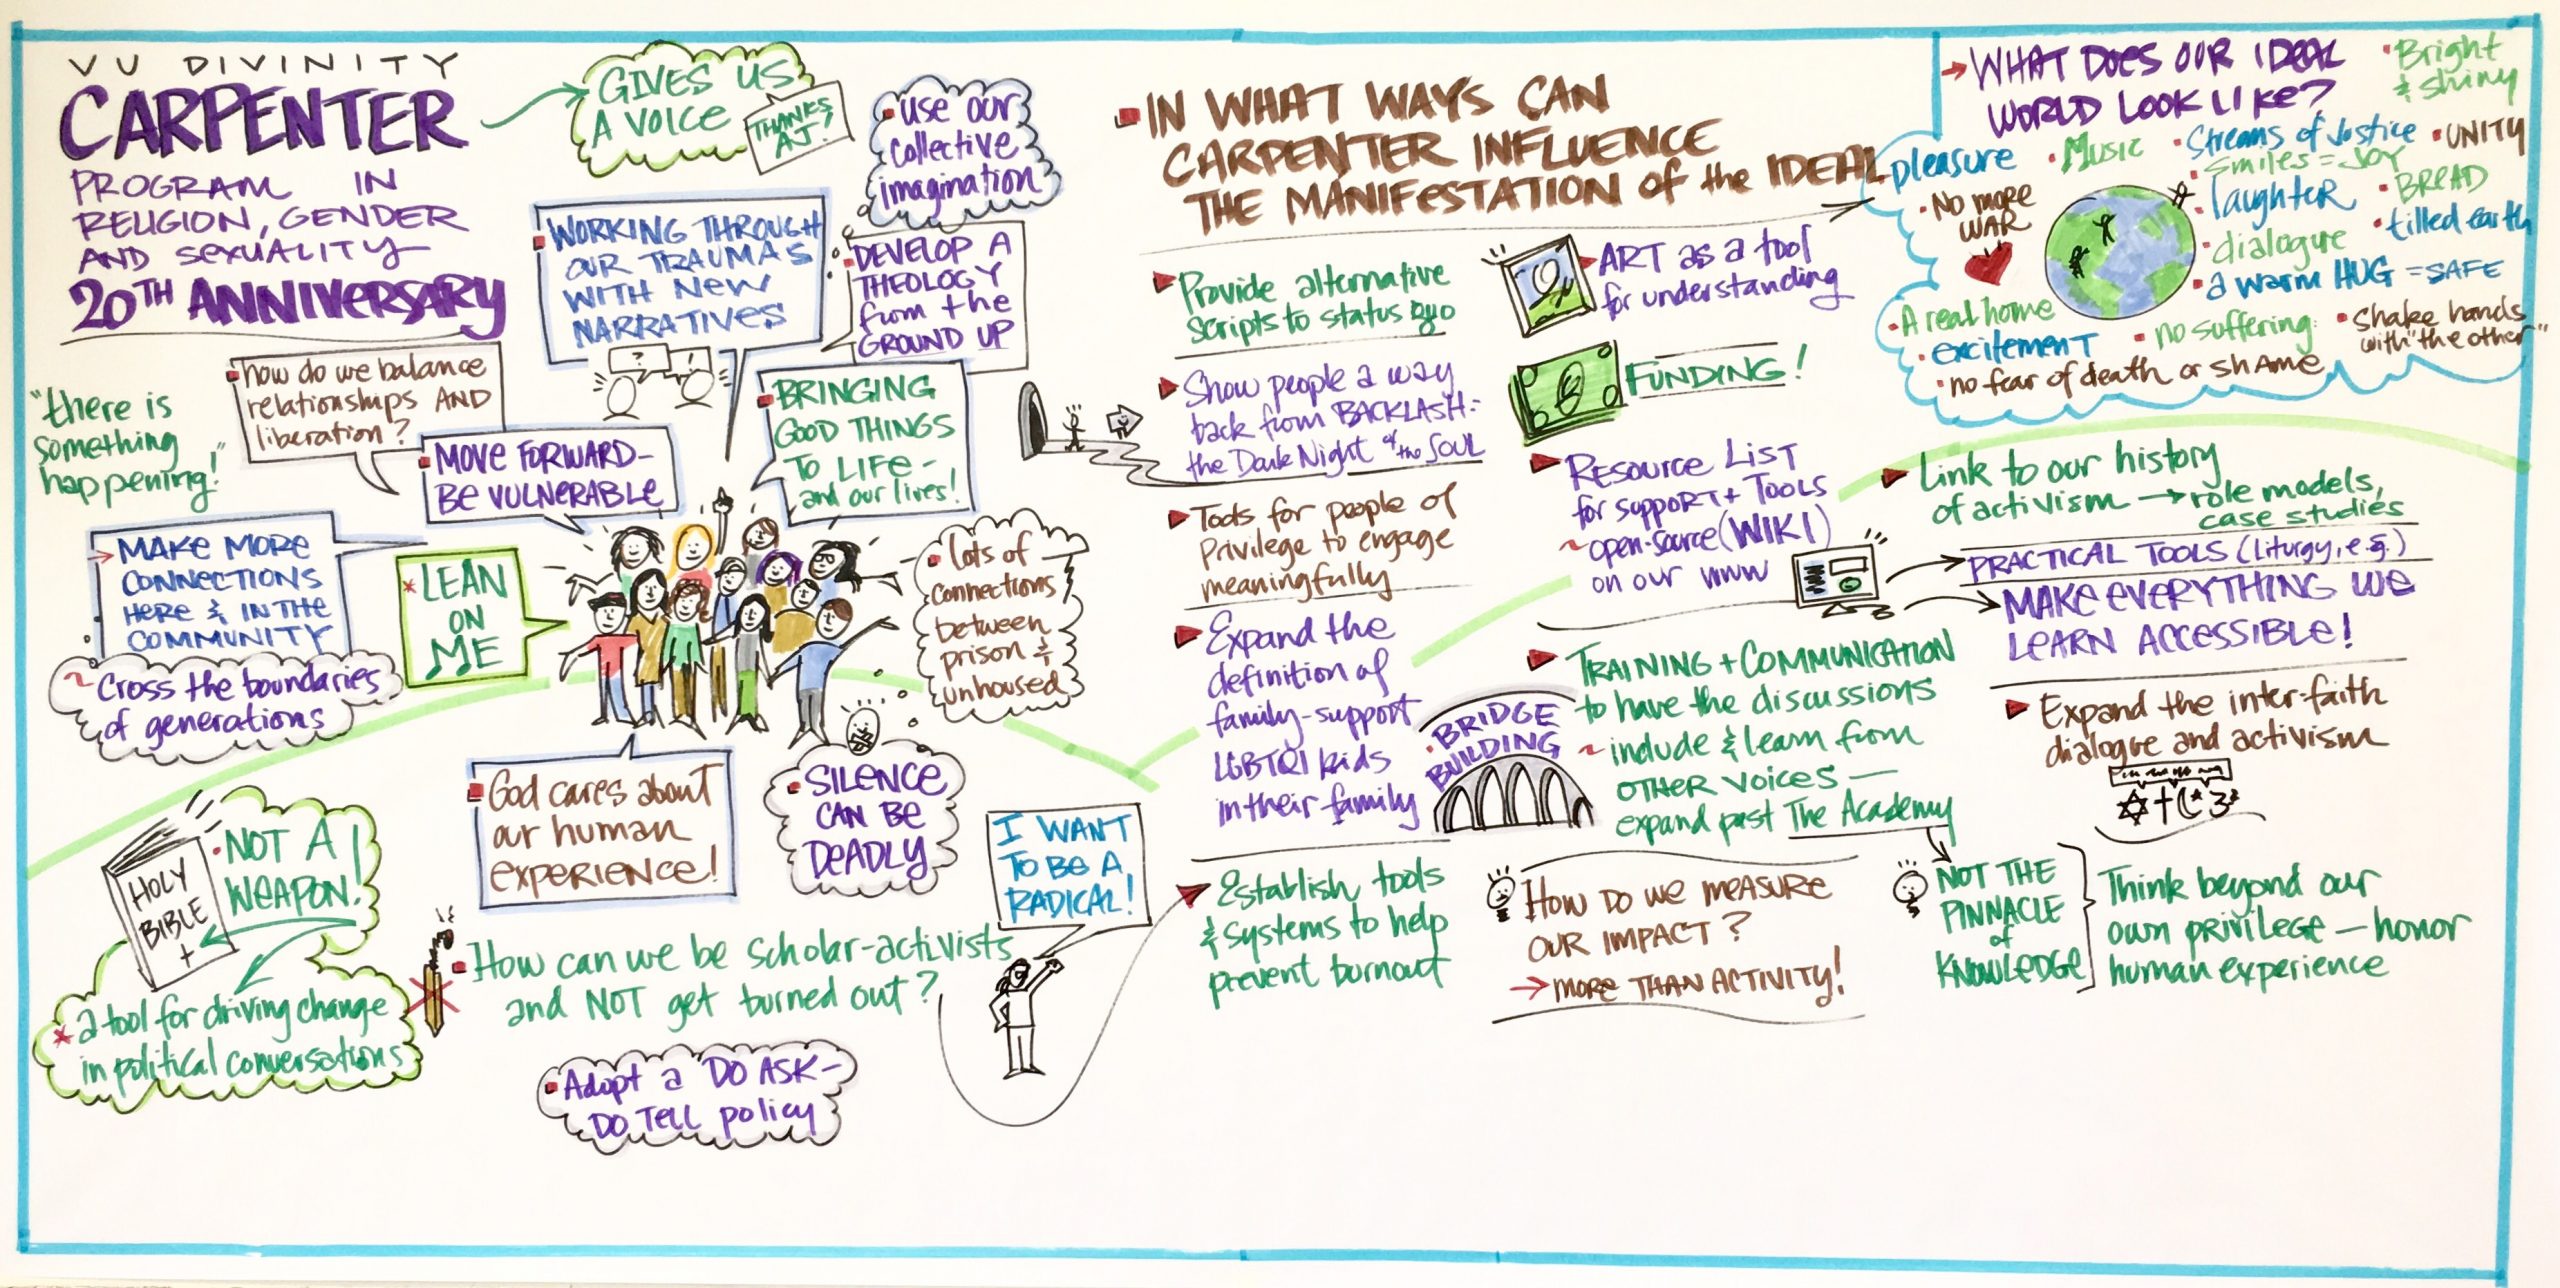 VU DIVINITY
CARPENTER
PROGRAM IN
RELIGION, GENDER
AND SEXUALITY
20TH ANNIVERSARY
GIVES US
A VOICE
THANKS
AJ!
• use our
collective
imagination
WORKING THROUGH
OUR TRAUMAS
WITH NEW
NARRATIVES
DEVELOP A
THEOLOGY
from the
GROUND UP
"there is
something
happening!"
how do we balance
relationships AND
liberation?
? !
MOVE FORWARD-
BE VULNERABLE
BRINGING
GOOD THINGS
TO LIFE -
and our lives!
MAKE MORE
CONNECTIONS
HERE & IN THE
COMMUNITY
~ Cross the boundaries
of generations
* LEAN
ON
ME
• lots of
connections
between
prison &
unhoused
God cares about
our human
experience!
• SILENCE
CAN BE
DEADLY
HOLY
BIBLE
• NOT A
WEAPON!
* a tool for driving change
in political conversations
How can we be scholar-activists
and NOT get burned out?
I WANT
TO BE A
RADICAL!
• Adopt a DO ASK-
DO TELL policy
IN WHAT WAYS CAN
CARPENTER INFLUENCE
THE MANIFESTATION of the IDEAL
Provide alternative
scripts to status quo
Show people a way
back from BACKLASH:
the Dark Night of the SOUL
Tools for people of
Privilege to engage
meaningfully
Expand the
definition of
family-support
LGBTQI kids
in their family
Establish tools
& systems to help
prevent burnout
ART as a tool
for understanding
FUNDING!
RESOURCE LIST
for support + TOOLS
~ open-source (WIKI)
on our www
• BRIDGE
BUILDING
TRAINING + COMMUNICATION
to have the discussions
~ include & learn from
OTHER VOICES —
expand past The Academy
HOW DO WE MEASURE
OUR IMPACT?
→ MORE THAN ACTIVITY!
→ WHAT DOES OUR IDEAL
WORLD LOOK LIKE?
• Bright
& shiny
pleasure
• Music
• Streams of Justice
• UNITY
Smiles = JOY
• No more
WAR
• laughter
• BREAD
• dialogue
• tilled earth
• a warm HUG = SAFE
• A real home
• excitement
• no suffering
• Shake hands
with "the other"
• no fear of death or shame
Link to our history
of activism → role models,
case studies
PRACTICAL TOOLS (liturgy, e.g.)
MAKE EVERYTHING WE
LEARN ACCESSIBLE!
Expand the inter-faith
dialogue and activism
NOT THE
PINNACLE
of
KNOWLEDGE
Think beyond our
own privilege — honor
human experience